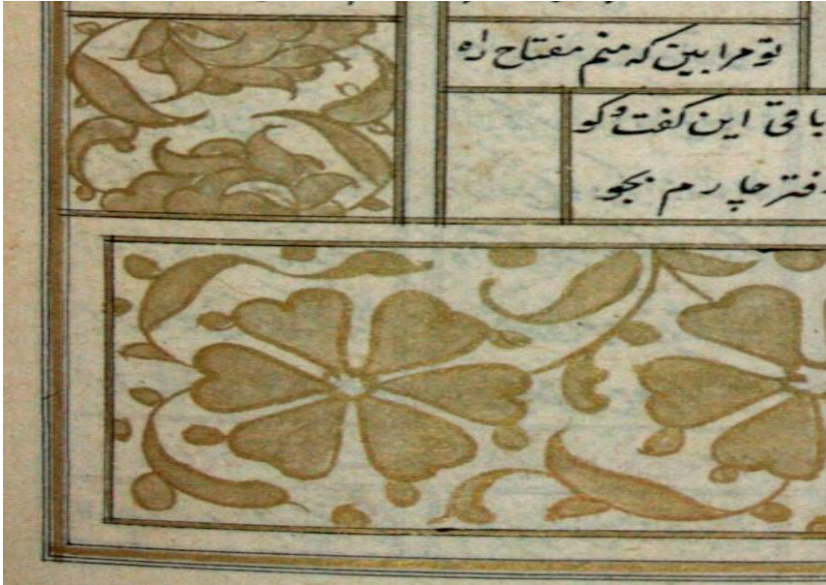 تو مرا بین که منم مفتاح راه
باقی این گفت و کو
دفتر چارم بجو